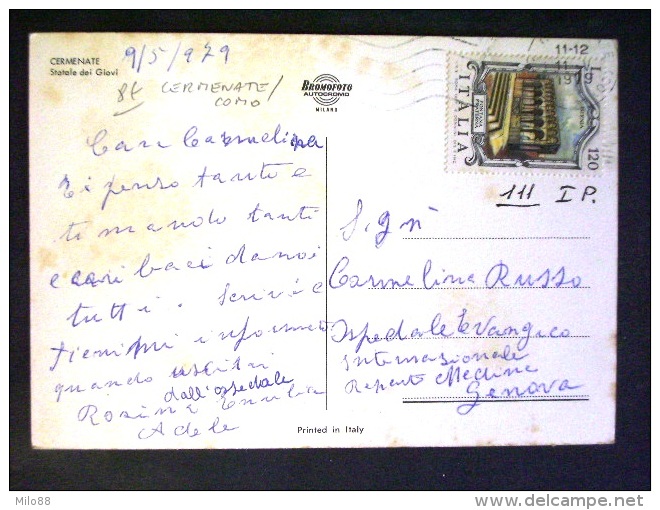 CERMENATE
Statale dei Giovi
9/5/979
CERMENATE/
COMO
BROMOFOTO
AUTOCROMO
MILANO
11-12
1979
ITALIA
120
111 I P.
Cara Carmelina
ti penso tanto e
ti mando tanti
e cari baci da noi
tutti. Scrivi e
tienimi informato
quando uscirai
dall'ospedale
Rosina
Adele
Sig.
Carmelina Russo
Ospedale Evangico
Internazionale
Reparto Medicina
Genova
Printed in Italy
Milo88
delcampe.net